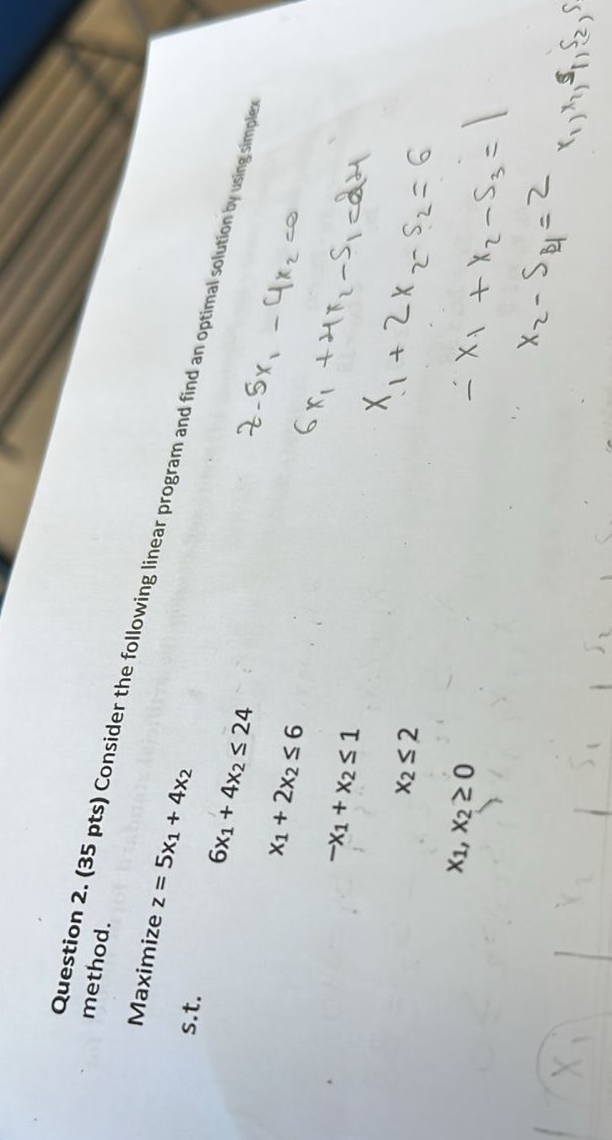 Question 2. (35 pts) Consider the following linear program and find an optimal solution by using simplex
method.
Maximize z = 5x₁ + 4x₂
s.t.
6x₁ + 4x₂ ≤ 24
x₁ + 2x₂ ≤ 6
−x₁ + x₂ ≤ 1
x₂ ≤ 2
x₁, x₂ ≥ 0
z - 5x₁ - 4x₂ = 0
6x₁ + 4x₂ - S₁ = 24
x₁ + 2x₂ - S₂ = 6
- x₁ + x₂ - S₃ = 1
x₂ - S₄ = 2
x₁, x₂, S₁, S₂, S
x₁ | x₂ | S₁ | S₂ | S